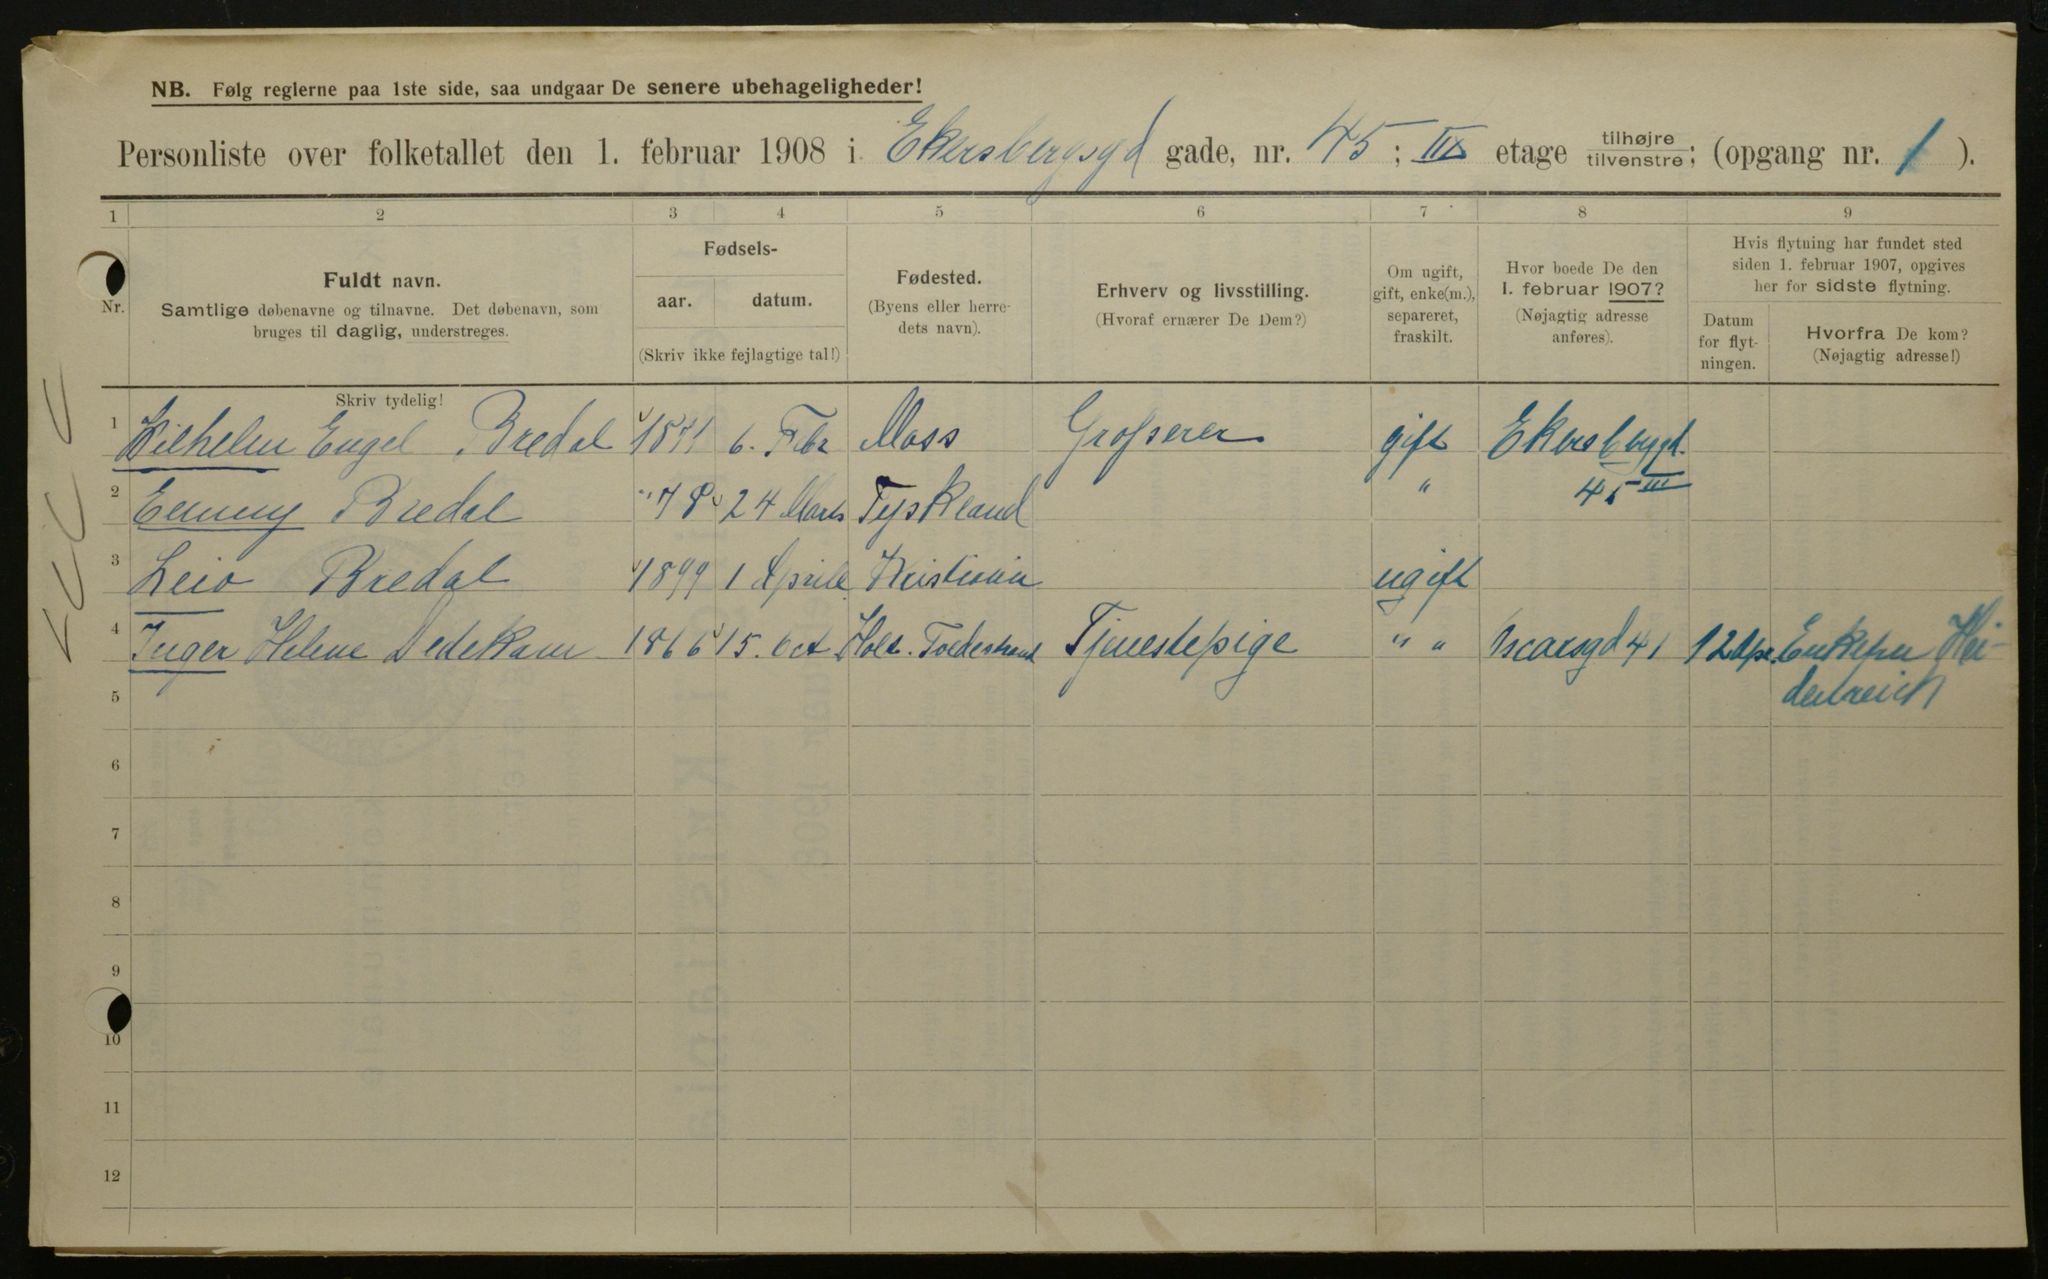 NB. Følg reglerne paa 1ste side, saa undgaar De senere ubehageligheder!
Personliste over folketallet den 1. februar 1908 i Ekersbergsgd gade, nr. 45; III etage tilhøjre/tilvenstre; (opgang nr. 1 ).
1 2 3 4 5 6 7 8 9
Nr.
Fuldt navn.
Samtlige døbenavne og tilnavne. Det døbenavn, som
bruges til daglig, understreges.
Skriv tydelig!
Fødsels-
aar. datum.
(Skriv ikke fejlagtige tal!)
Fødested.
(Byens eller herre-
dets navn).
Erhverv og livsstilling.
(Hvoraf ernærer De Dem?)
Om ugift,
gift, enke(m.),
separeret,
fraskilt.
Hvor boede De den
1. februar 1907?
(Nøjagtig adresse
anføres).
Hvis flytning har fundet sted
siden 1. februar 1907, opgives
her for sidste flytning.
Datum
for flyt-
ningen.
Hvorfra De kom?
(Nøjagtig adresse!)
1 Wilhelm Engel Bredal 1871 6. Febr Moss Grosserer gift Ekersbergd.
2 Emmy Bredal " 78 24 Marts Tyskland " 45 III
3 Leiv Bredal 1899 1 April Kristiania ugift
4 Inger Helene Dedekam 1866 15. Oct Holt. Tvedestrand Tjenestepige " " Oscarsgd 41 12 Apr. Enkefru Hei-
5 denreich
6
7
8
9
10
11
12